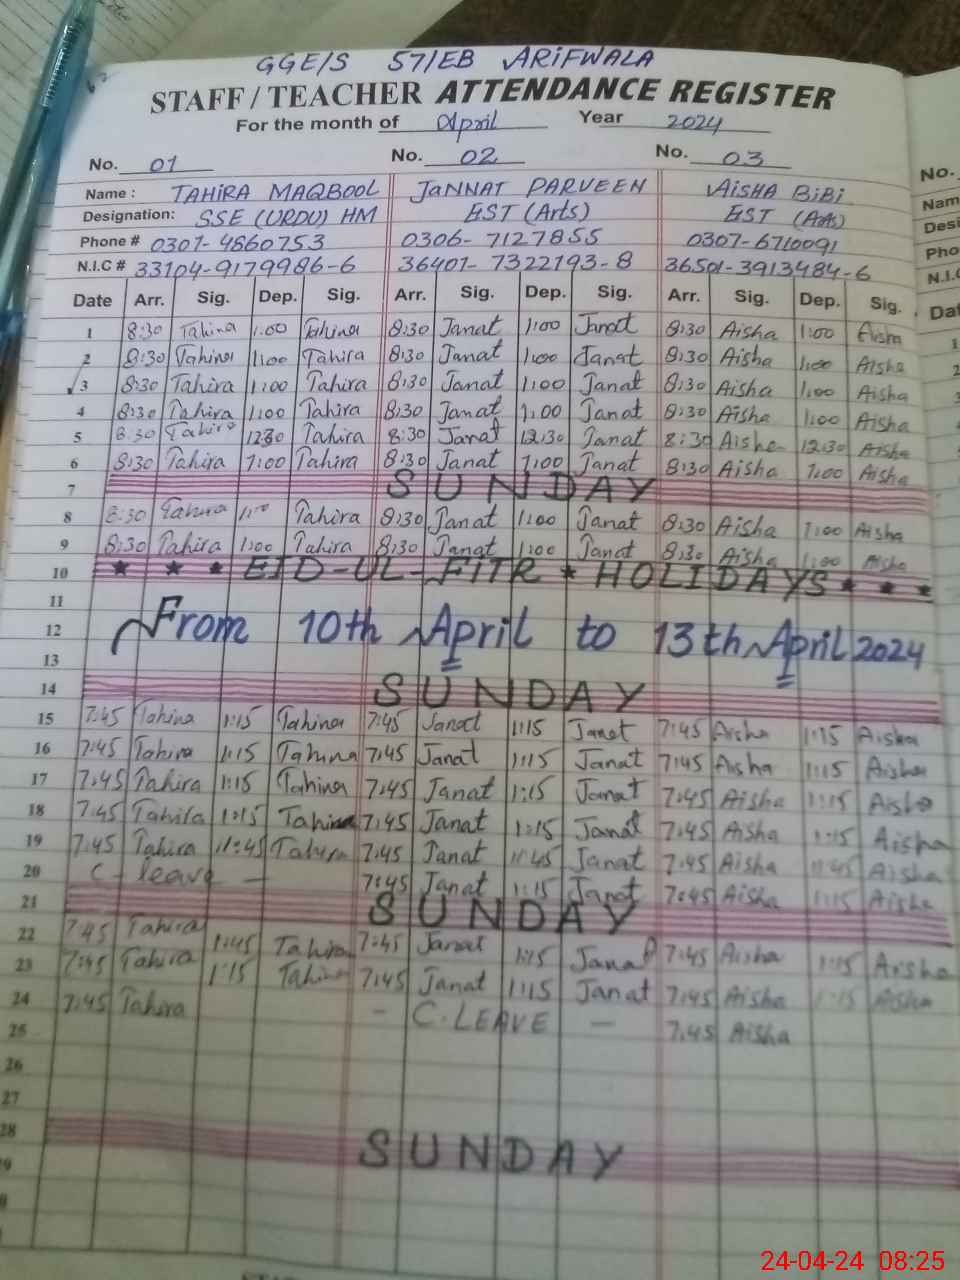 GGE/S 57/EB ARIFWALA
STAFF / TEACHER ATTENDANCE REGISTER
For the month of April Year 2024
No. 01 No. 02 No. 03 No.
Name : TAHIRA MAQBOOL JANNAT PARVEEN AISHA BIBI Nam
Designation: SSE (URDU) HM EST (Arts) EST (Arts) Desi
Phone # 0307-4860753 0306-7127855 0307-6710091 Pho
N.I.C # 33104-9179986-6 36401-7322193-8 36501-3913484-6 N.I.C
Date Arr. Sig. Dep. Sig. Arr. Sig. Dep. Sig. Arr. Sig. Dep. Sig. Dat
1 8:30 Tahira 1:00 Tahira 8:30 Janat 1:00 Janat 8:30 Aisha 1:00 Aisha
2 8:30 Tahira 1:00 Tahira 8:30 Janat 1:00 Janat 8:30 Aisha 1:00 Aisha
3 8:30 Tahira 1:00 Tahira 8:30 Janat 1:00 Janat 8:30 Aisha 1:00 Aisha
4 8:30 Tahira 1:00 Tahira 8:30 Janat 1:00 Janat 8:30 Aisha 1:00 Aisha
5 8:30 Tahira 12:30 Tahira 8:30 Janat 12:30 Janat 8:30 Aisha 12:30 Aisha
6 8:30 Tahira 1:00 Tahira 8:30 Janat 1:00 Janat 8:30 Aisha 1:00 Aisha
7 SUNDAY
8 8:30 Tahira 1:00 Tahira 8:30 Janat 1:00 Janat 8:30 Aisha 1:00 Aisha
9 8:30 Tahira 1:00 Tahira 8:30 Janat 1:00 Janat 8:30 Aisha 1:00 Aisha
10 ★ ★ ★ EID-UL-FITR ★ HOLIDAYS ★ ★ ★
11
12 From 10th April to 13th April 2024
13
14 SUNDAY
15 7:45 Tahira 1:15 Tahira 7:45 Janat 1:15 Janat 7:45 Aisha 1:15 Aisha
16 7:45 Tahira 1:15 Tahira 7:45 Janat 1:15 Janat 7:45 Aisha 1:15 Aisha
17 7:45 Tahira 1:15 Tahira 7:45 Janat 1:15 Janat 7:45 Aisha 1:15 Aisha
18 7:45 Tahira 1:15 Tahira 7:45 Janat 1:15 Janat 7:45 Aisha 1:15 Aisha
19 7:45 Tahira 11:45 Tahira 7:45 Janat 11:45 Janat 7:45 Aisha 11:45 Aisha
20 C-leave - 7:45 Janat 1:15 Janat 7:45 Aisha 1:15 Aisha
21 SUNDAY
22 7:45 Tahira 1:45 Tahira 7:45 Janat 1:15 Janat 7:45 Aisha 1:15 Aisha
23 7:45 Tahira 1:15 Tahira 7:45 Janat 1:15 Janat 7:45 Aisha 1:15 Aisha
24 7:45 Tahira - C.LEAVE - 7:45 Aisha
25
26
27
28 SUNDAY
24-04-24 08:25